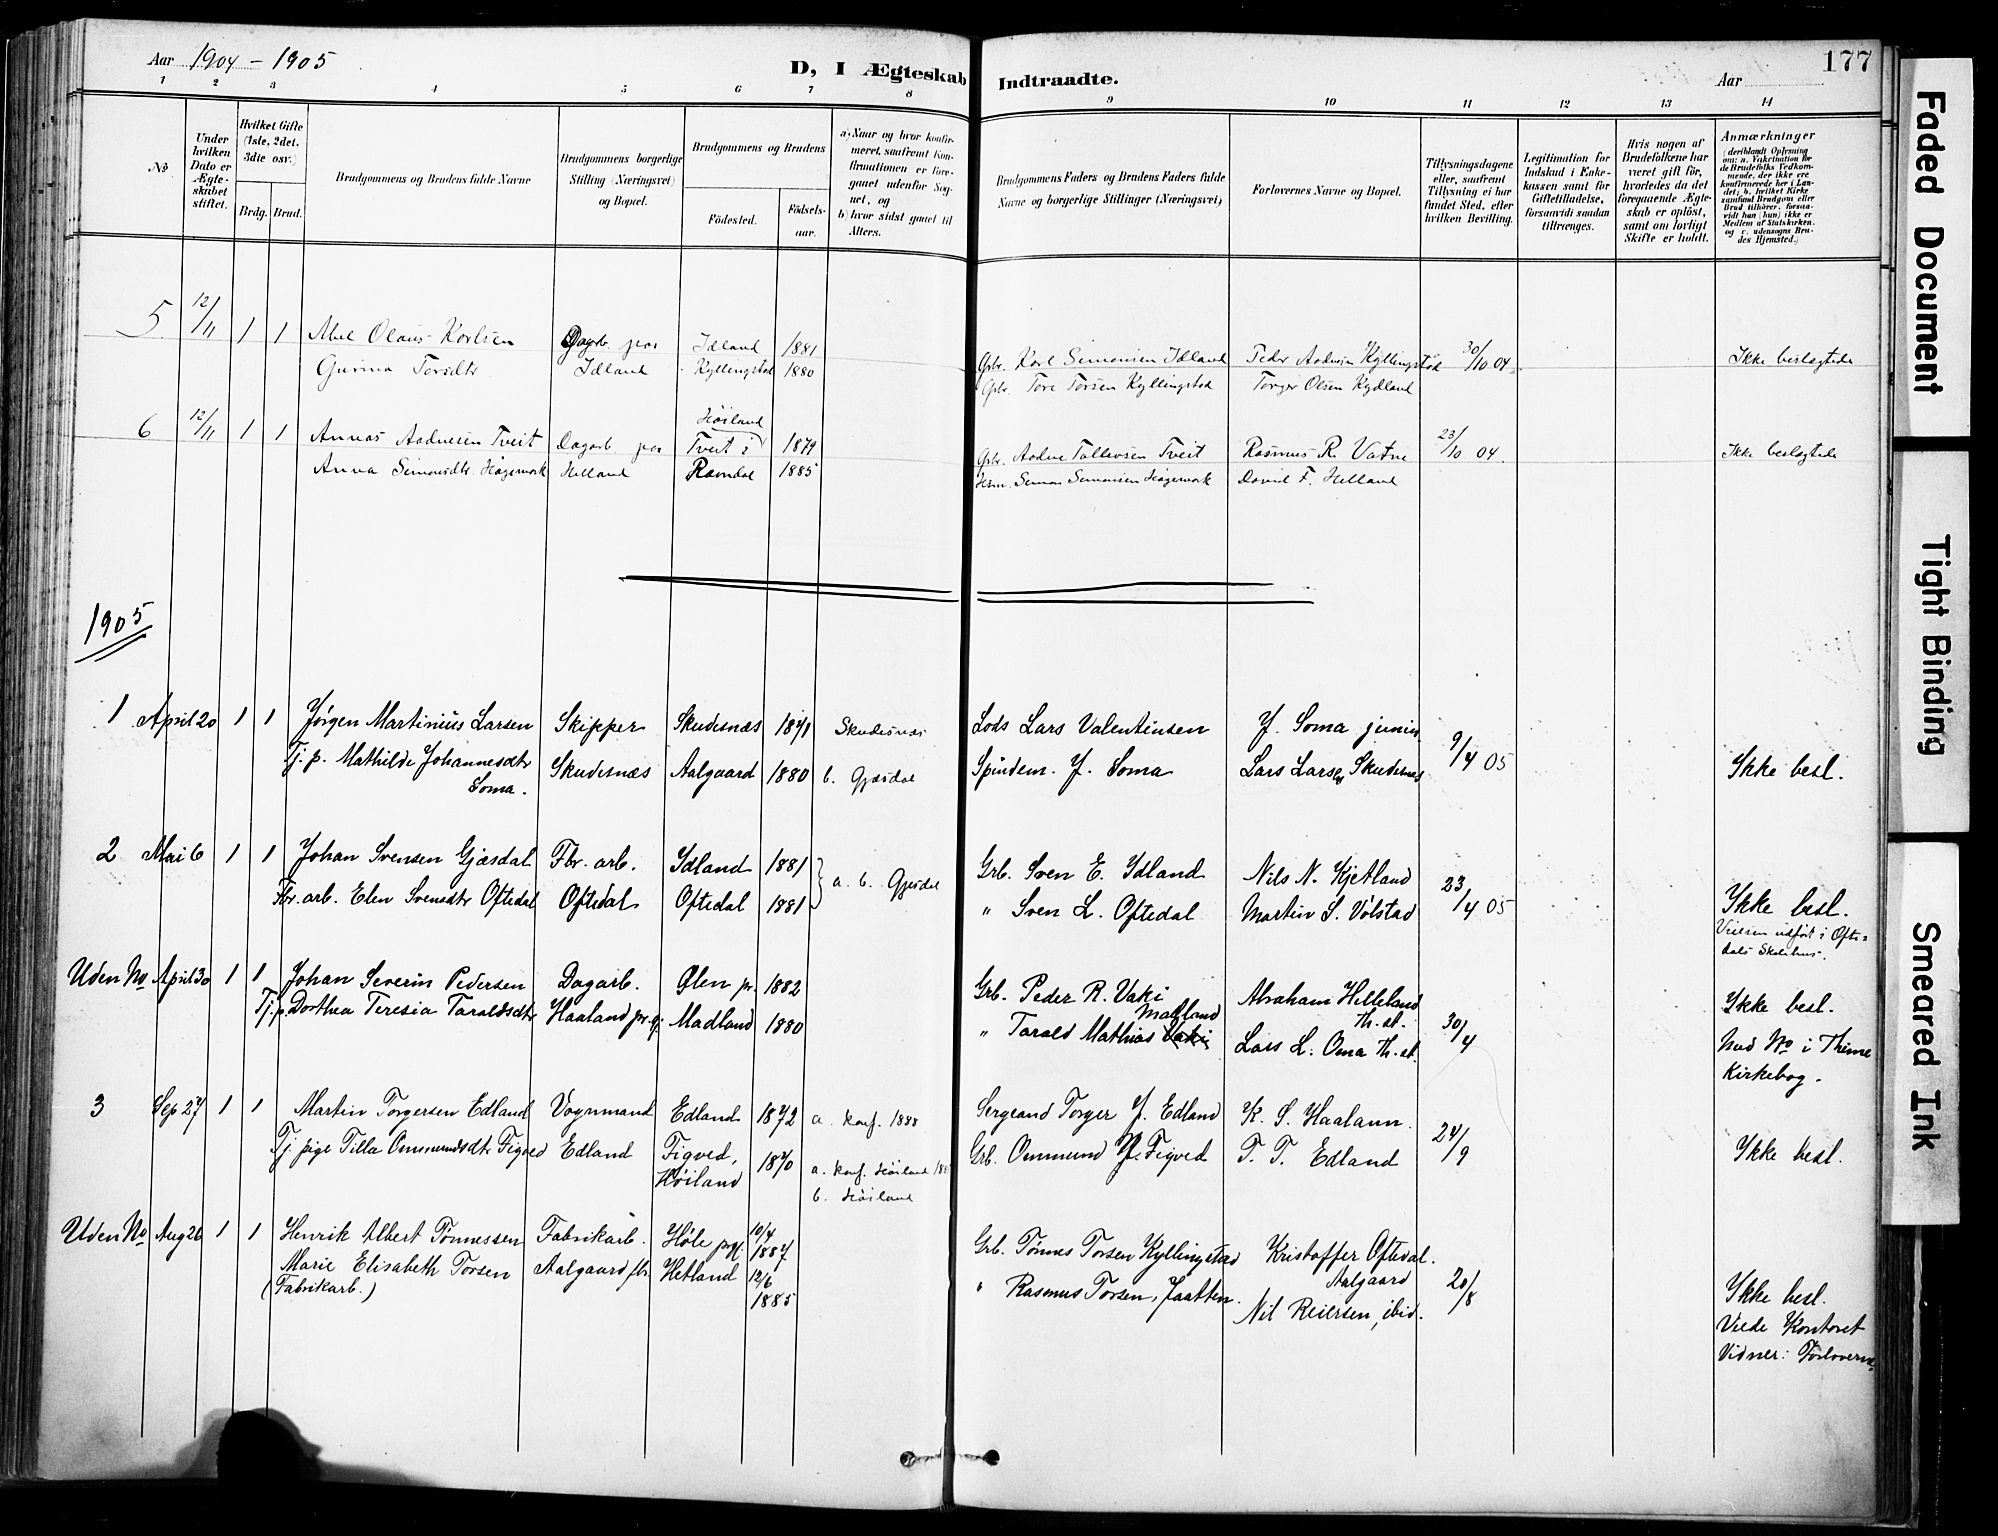 Aar 1904 - 1905
D, I Ægteskab Indtraadte.
Aar
177
1 2 3 4 5 6 7 8 9 10 11 12 13 14
No
Under hvilken Dato er Ægteskabet stiftet.
Hvilket Gifte (1ste, 2det, 3die osv.)
Brdg. Brud.
Brudgommens og Brudens fulde Navne
Brudgommens borgerlige Stilling (Næringsvei) og Bopæl.
Brudgommens og Brudens
Fødested. Fødsels-aar.
a) Naar og hvor konfirmeret, saafremt Konfirmationen er foregaaet udenfor Sognet, og
b) hvor sidst gaaet til Alters.
Brudgommens Faders og Brudens Faders fulde Navne og borgerlige Stillinger (Næringsvei)
Forlovernes Navne og Bopæl.
Tillysningsdagene eller, saafremt Tillysning ei har fundet Sted, efter hvilken Bevilling.
Legitimation for Indskud i Enkekassen samt for Giftetilladelse, forsaavidt saadan tiltrænges.
Hvis nogen af Brudefolkene har været gift før, hvorledes da det foregaaende Ægteskab er opløst, samt om lovligt Skifte er holdt.
Anmærkninger (deriblandt Oplysning om: a. Vakcination for de Brudefolks Vedkommende, der ikke ere konfirmerede her i Landet; b. hvilket Kirkesamfund Brudgom eller Brud tilhører, forsaavidt han (hun) ikke er Medlem af Statskirken, og c. udensogns Brudes Hjemsted.)
5 12/11 1 1 Abel Olaus Karlsen Dagarb. paa Idland 1881 Gbr. Karl Simonsen Idland Peder Aadnesen Kyllingstad 30/10 04 Ikke beslagtede
Gurina Torsdtr Idland Kyllingstad 1880 Gbr. Tore Torsen Kyllingstad Torger Olsen Kydland
6 12/11 1 1 Annas Aadnesen Tveit Dagarb paa Tveit i Høiland 1879 Gbr. Aadne Tallevsen Tveit Rasmus R. Vatne 23/10 04. Ikke beslagtede
Anna Simonsdtr. Hagemark Helland Ramdal 1885 Hsm. Simon Simonsen Hagemark David F. Helland
1905
1 April 20 1 1 Jørgen Martinius Larsen Skipper Skudesnæs 1871 Skudesnæs Lods Lars Valentinsen J. Soma junior 9/4 05 Ikke besl.
Tj. p. Mathilde Johannesdtr Soma. Skudesnæs Aalgaard 1880 b. Gjæsdal Spindem. J. Soma Lars Larsen Skudesnæs
2 Mai 6 1 1 Johan Svensen Gjæsdal Fbr. arb. Idland 1881 a. b. Gjæsdal Grb. Sven E. Idland Nils N. Kjetland 23/4 05 Ikke besl.
Fbr. arb. Elen Svensdtr Oftedal Oftedal Oftedal 1881 " Sven L. Oftedal Martin S. Vølstad Vielsen udført i Oftedals Skolehus.
Uden No April 30 1 1 Johan Severin Pedersen Dagarb. Olen pr. 1882 Grb. Peder R. Vaki Abraham Helleland Th. st. 30/4 Ikke besl.
Tj. p. Dorthea Teresia Taraldsdtr Haaland pr. Gj. Madland 1880 " Tarald Mathias Vaki Madland Lars L. Oma Th. st. Med No i Thime Kirkebog.
3 Sep 27 1 1 Martin Torgersen Edland Vognmand Edland 1872 a. konf. 1888 Sergeand Torger J. Edland K. S. Haaland. 24/9 Ikke besl.
Tj. pige Tilla Ommundsdtr Figved Edland Figved, Høiland 1870 a. konf. Høiland b. Høiland Grb. Ommund J. Figved T. T. Edland
Uden No Aug 26 1 1 Henrik Albert Tønnessen Fabrikarb. Høle pgj. 10/4 1887 Grb. Tønnes Torsen Kyllingstad Kristoffer Oftedal. Aalgaard 20/8 Ikke besl.
Marie Elisabeth Torsen (Fabrikarb.) Aalgaard fbr. Hetland 12/6 1885 " Rasmus Torsen, Jaatten. Nil Reiersen, ibid. Viede Kontoret Vidner: Forloverne
Faded Document
Tight Binding
Smeared Ink